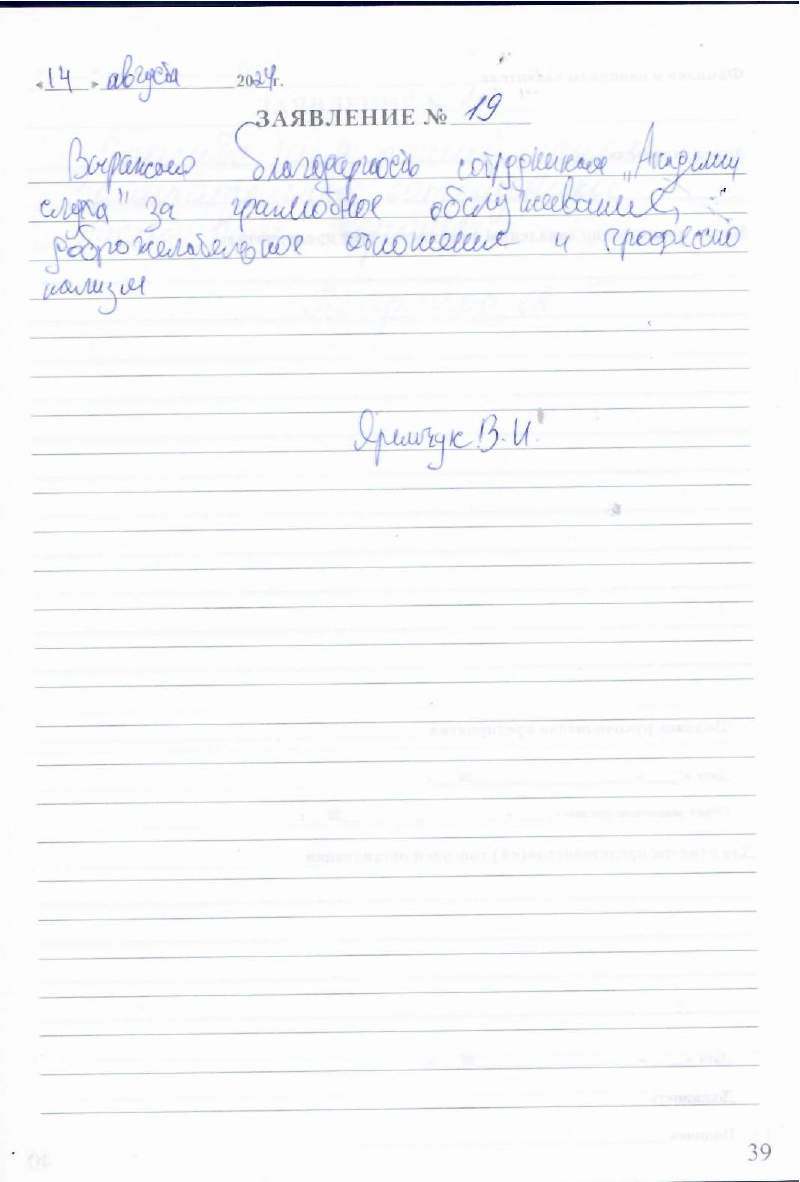 «14» августа 2024г.
ЗАЯВЛЕНИЕ № 19
Выражаю благодарность сотрудникам „Академии
слуха" за грамотное обслуживание,
доброжелательное отношение и професcио
нализм
Яремчук В.И.
39